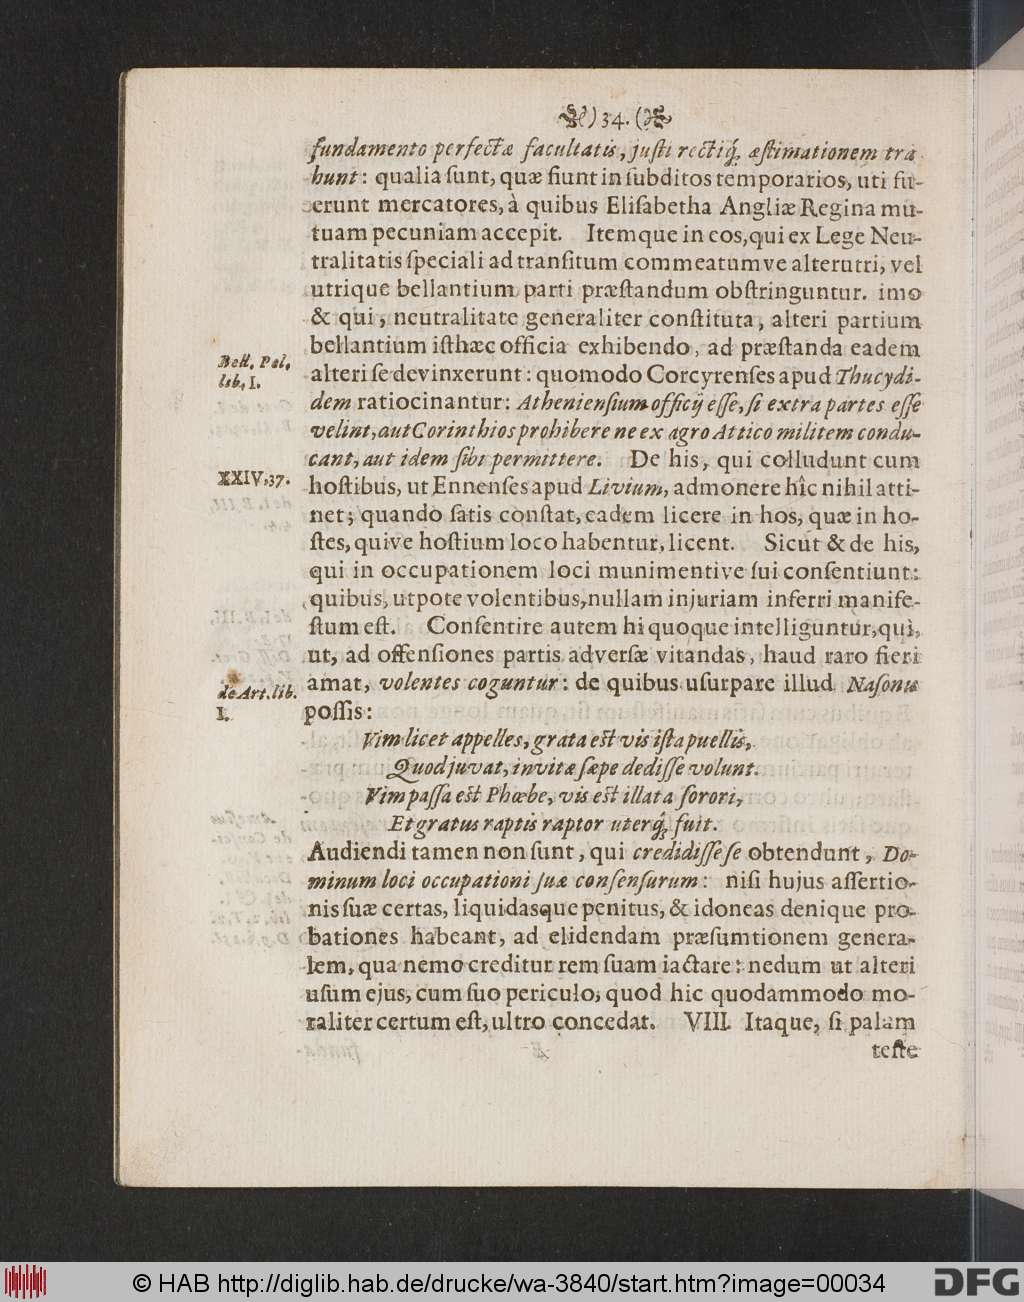 ) 34. (
fundamento perfectæ facultatis, justi rectiq́; æstimationem tra
hunt: qualia sunt, quæ fiunt in subditos temporarios, uti fu-
erunt mercatores, à quibus Elisabetha Angliæ Regina mu-
tuam pecuniam accepit. Itemque in eos, qui ex Lege Neu-
tralitatis speciali ad transitum commeatumve alterutri, vel
utrique bellantium parti præstandum obstringuntur. imo
& qui, neutralitate generaliter constituta, alteri partium
bellantium isthæc officia exhibendo, ad præstanda eadem
Bell. Pel.
lib. I.
alteri se devinxerunt: quomodo Corcyrenses apud Thucydi-
dem ratiocinantur: Atheniensium officij esse, si extra partes esse
velint, aut Corinthios prohibere ne ex agro Attico militem condu-
cant, aut idem sibi permittere. De his, qui colludunt cum
XXIV, 37.
hostibus, ut Ennenses apud Livium, admonere hîc nihil atti-
net; quando satis constat, eadem licere in hos, quæ in ho-
stes, quive hostium loco habentur, licent. Sicut & de his,
qui in occupationem loci munimentive sui consentiunt:
quibus, utpote volentibus, nullam injuriam inferri manife-
stum est. Consentire autem hi quoque intelliguntur, qui,
ut, ad offensiones partis adversæ vitandas, haud raro fieri
de Art. lib.
I.
amat, volentes coguntur: de quibus usurpare illud Nasonis
possis:
Vim licet appelles, grata est vis ista puellis,
Quod juvat, invitæ sæpe dedisse volunt.
Vim passa est Phœbe, vis est illata sorori,
Et gratus raptis raptor uterq́; fuit.
Audiendi tamen non sunt, qui credidisse se obtendunt, Do-
minum loci occupationi suæ consensurum: nisi hujus assertio-
nis suæ certas, liquidasque penitus, & idoneas denique pro-
bationes habeant, ad elidendam præsumtionem genera-
lem, qua nemo creditur rem suam iactare: nedum ut alteri
usum ejus, cum suo periculo, quod hic quodammodo mo-
raliter certum est, ultro concedat. VIII. Itaque, si palam
teste
© HAB http://diglib.hab.de/drucke/wa-3840/start.htm?image=00034
DFG